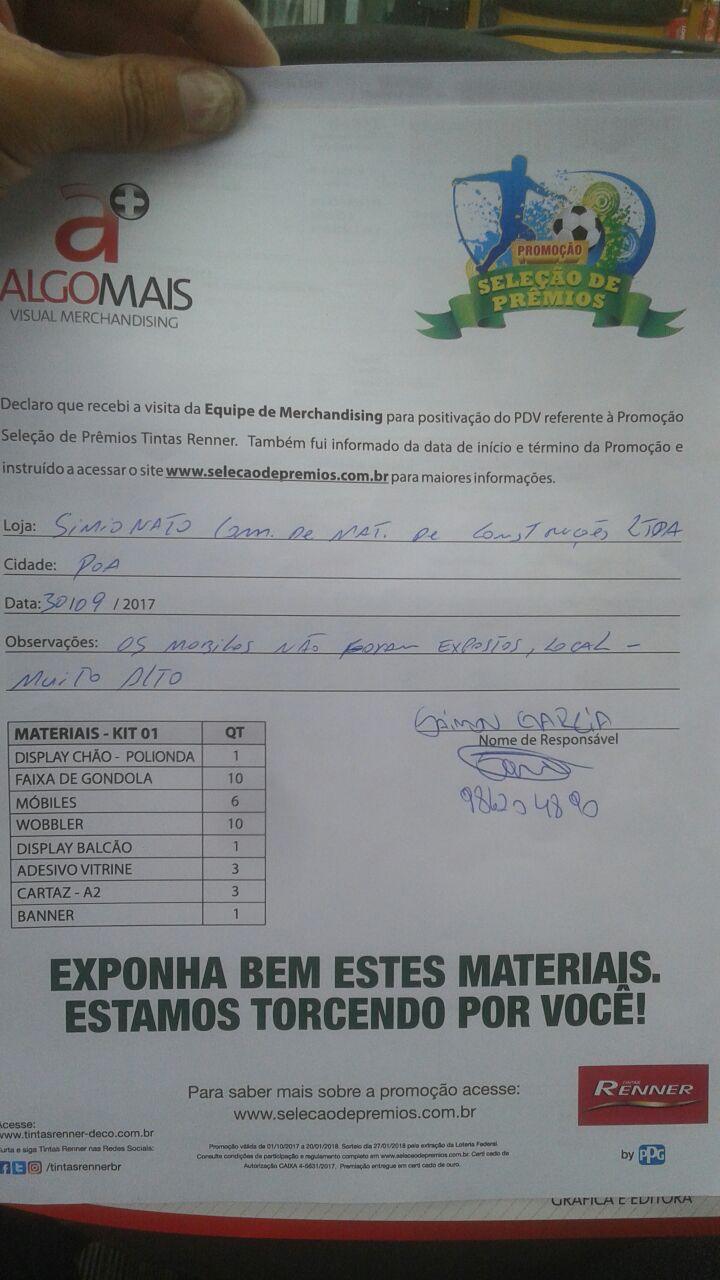 a+
ALGOMAIS
VISUAL MERCHANDISING
PROMOÇÃO
SELEÇÃO DE
PRÊMIOS
Declaro que recebi a visita da Equipe de Merchandising para positivação do PDV referente à Promoção
Seleção de Prêmios Tintas Renner. Também fui informado da data de início e término da Promoção e
instruído a acessar o site www.selecaodepremios.com.br para maiores informações.
Loja: SIMIONATO Com. De MAT. De Construções LTDA
Cidade: POA
Data: 30/09 / 2017
Observações: OS MOBILES NÃO FORAM EXPOSTOS, LOCAL -
MUITO ALTO
GARCIA
Nome de Responsável
MATERIAIS - KIT 01 QT
DISPLAY CHÃO - POLIONDA 1
FAIXA DE GONDOLA 10
MÓBILES 6
WOBBLER 10
DISPLAY BALCÃO 1
ADESIVO VITRINE 3
CARTAZ - A2 3
BANNER 1
EXPONHA BEM ESTES MATERIAIS.
ESTAMOS TORCENDO POR VOCÊ!
Para saber mais sobre a promoção acesse:
www.selecaodepremios.com.br
TINTAS
RENNER
by PPG
Acesse:
www.tintasrenner-deco.com.br
Curta e siga Tintas Renner nas Redes Sociais:
/tintasrennerbr
Promoção válida de 01/10/2017 a 20/01/2018. Sorteio dia 27/01/2018 pela extração da Loteria Federal.
Consulte condições de participação e regulamento completo em www.selecaodepremios.com.br. Certi cado de
Autorização CAIXA 4-5631/2017. Premiação entregue em certi cado de ouro.
GRÁFICA E EDITORA